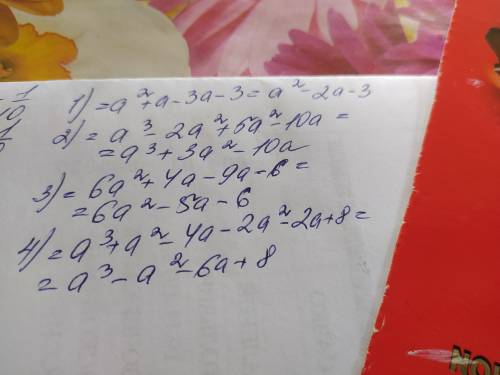 1
10
1) = a² + a - 3a - 3 = a² - 2a - 3
2) = a³ - 2a² + 5a² - 10a =
= a³ + 3a² - 10a
3) = 6a² + 4a - 9a - 6 =
= 6a² - 5a - 6
4) = a³ + a² - 4a - 2a² - 2a + 8 =
= a³ - a² - 6a + 8